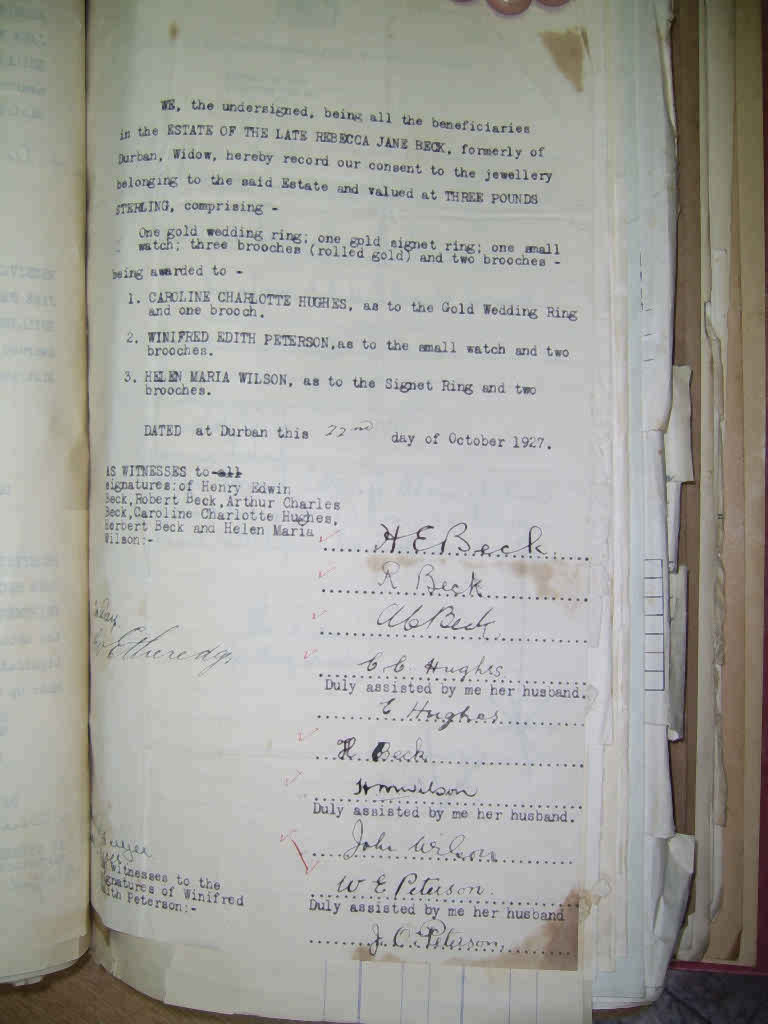 WE, the undersigned, being all the beneficiaries
in the ESTATE OF THE LATE REBECCA JANE BECK, formerly of
Durban, Widow, hereby record our consent to the jewellery
belonging to the said Estate and valued at THREE POUNDS
STERLING, comprising -
One gold wedding ring; one gold signet ring; one small
watch; three brooches (rolled gold) and two brooches -
being awarded to -
1. CAROLINE CHARLOTTE HUGHES, as to the Gold Wedding Ring
and one brooch.
2. WINIFRED EDITH PETERSON, as to the small watch and two
brooches.
3. HELEN MARIA WILSON, as to the Signet Ring and two
brooches.
DATED at Durban this 22nd day of October 1927.
AS WITNESSES to all
signatures: of Henry Edwin
Beck, Robert Beck, Arthur Charles
Beck, Caroline Charlotte Hughes,
Herbert Beck and Helen Maria
Wilson:-
H E Beck
R Beck
A C Beck
Etheredge
C C Hughes
Duly assisted by me her husband.
E Hughes
H Beck
H M Wilson
Duly assisted by me her husband.
John Wilson
W E Peterson.
Duly assisted by me her husband
J. C. Peterson.
Witnesses to the
signatures of Winifred
Edith Peterson:-